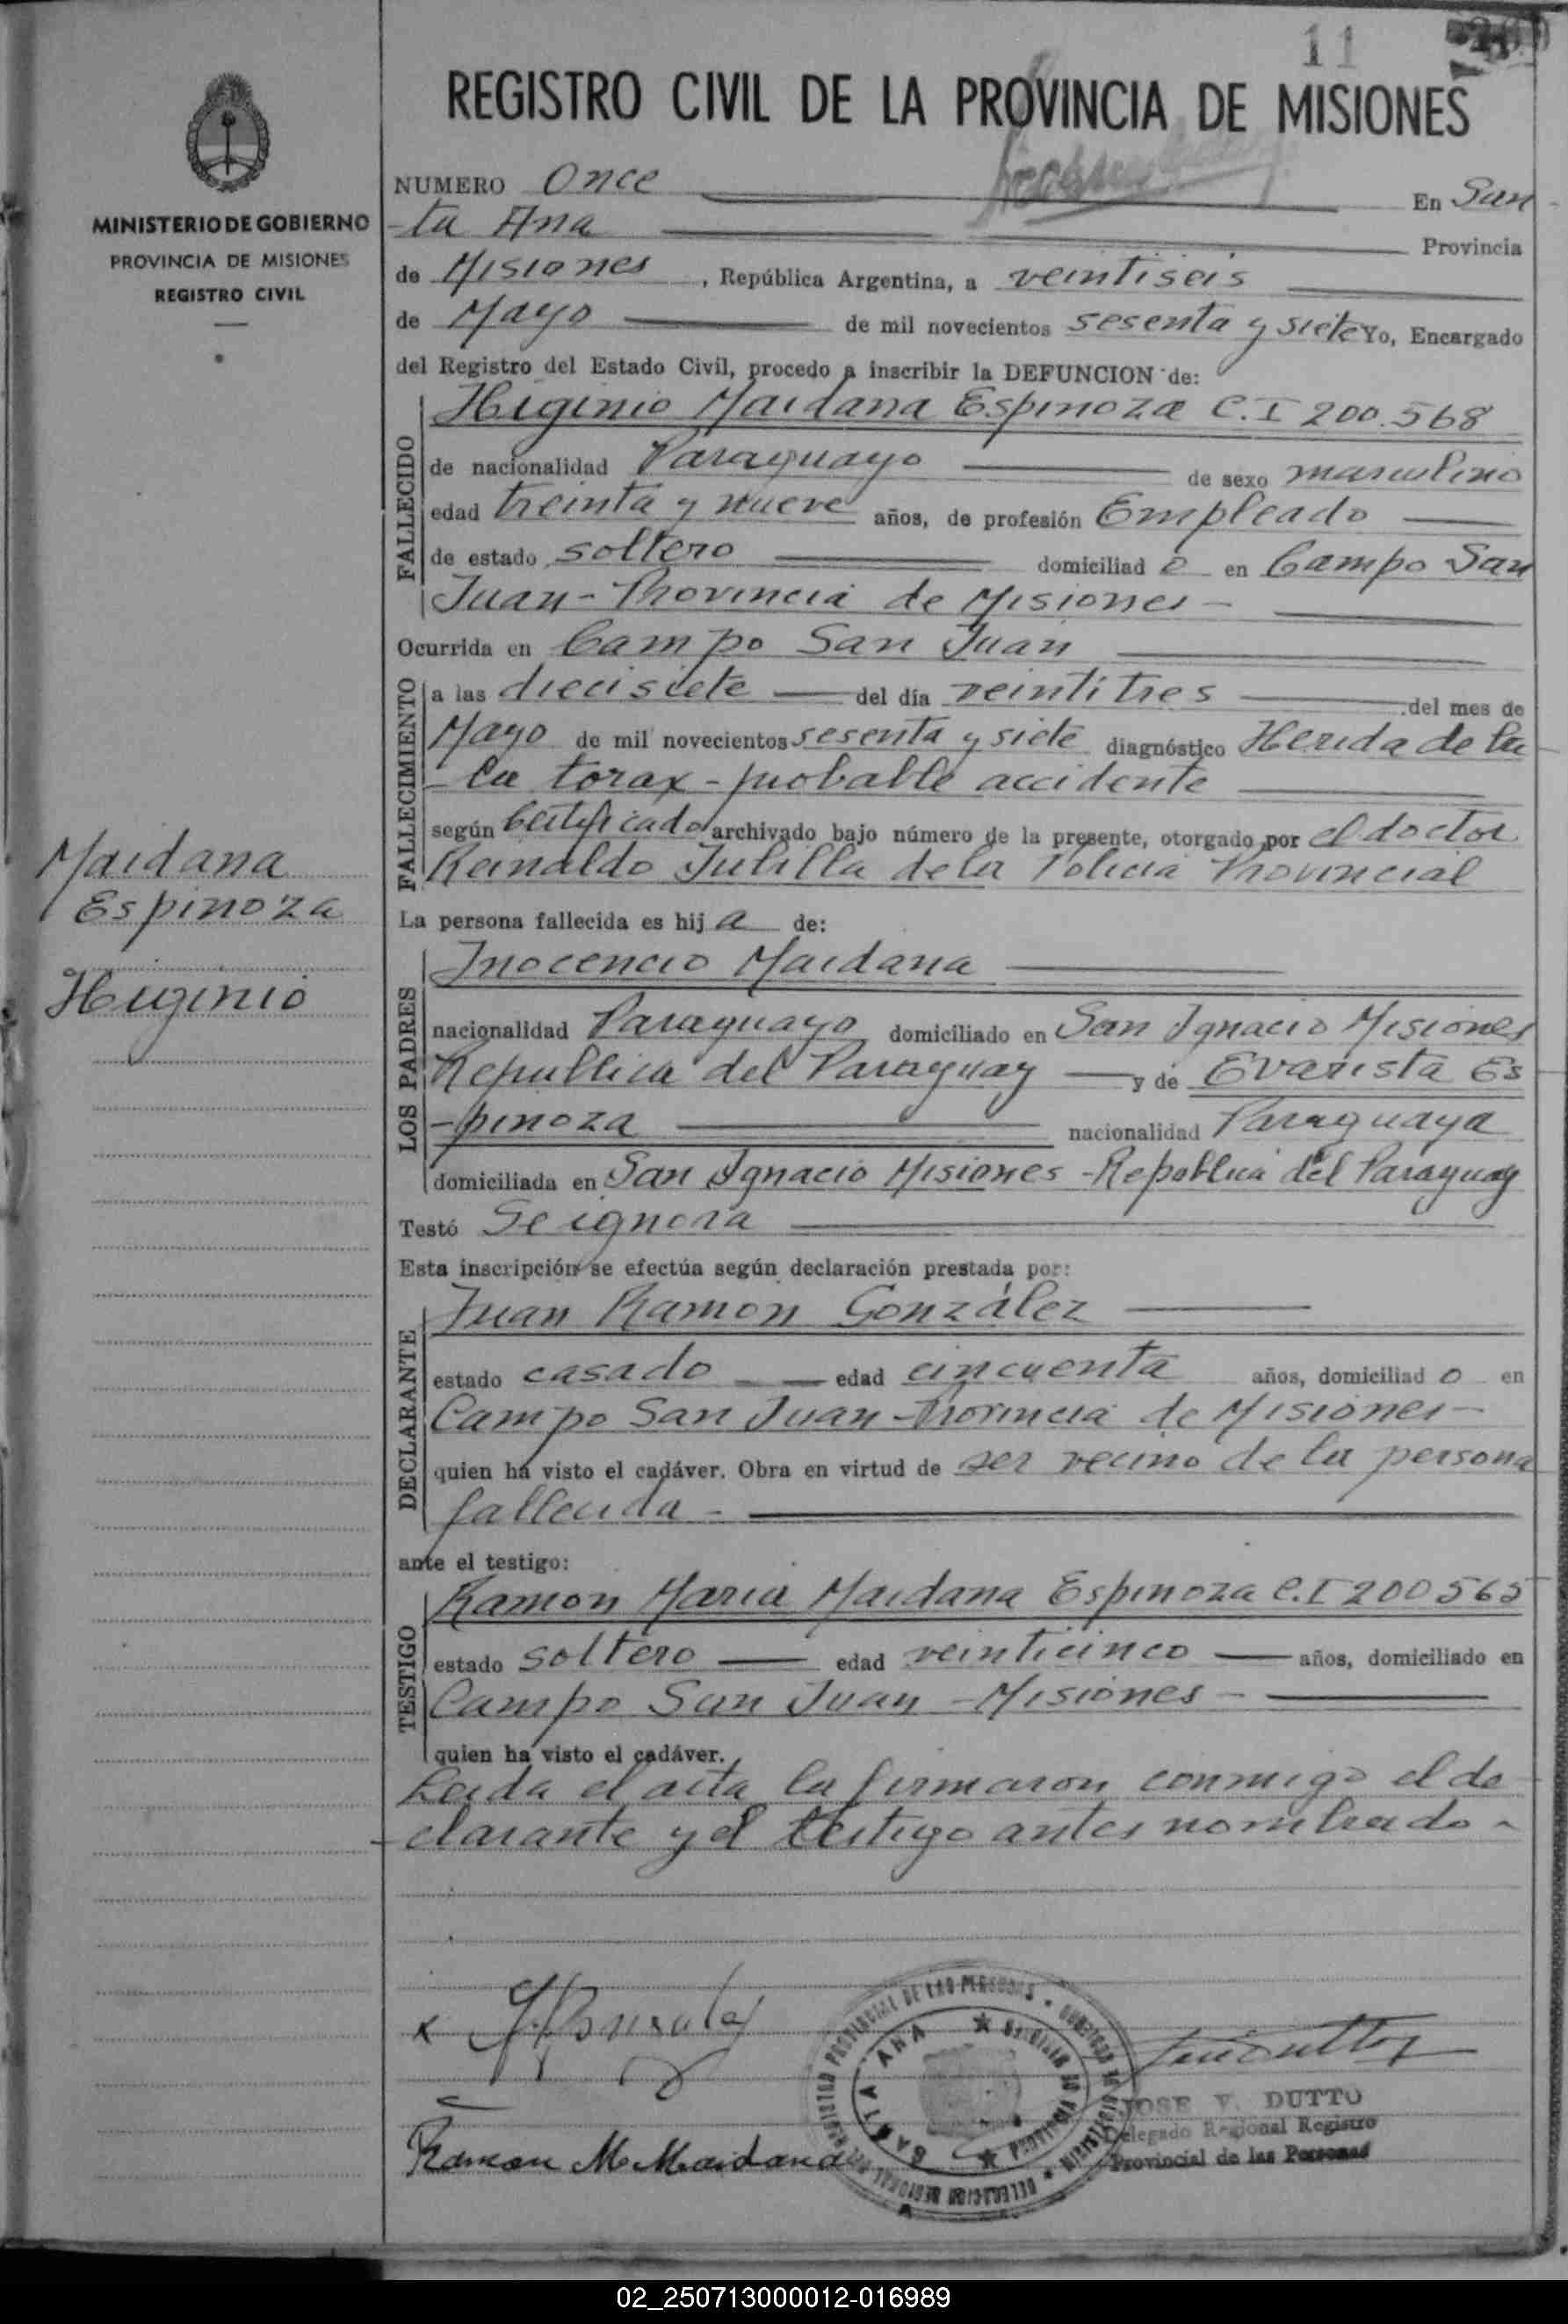 11
REGISTRO CIVIL DE LA PROVINCIA DE MISIONES
MINISTERIO DE GOBIERNO
PROVINCIA DE MISIONES
REGISTRO CIVIL
NUMERO Once En San
-ta Ana Provincia
de Misiones, República Argentina, a veintiseis
de Mayo de mil novecientos sesenta y siete Yo, Encargado
del Registro del Estado Civil, procedo a inscribir la DEFUNCION de:
FALLECIDO
Higinio Maidana Espinoza C.I 200.568
de nacionalidad Paraguayo de sexo masculino
edad treinta y nueve años, de profesión Empleado
de estado soltero domiciliad o en Campo San
Juan - Provincia de Misiones -
Ocurrida en Campo San Juan
FALLECIMIENTO
a las diecisiete del día veintitres del mes de
Mayo de mil novecientos sesenta y siete diagnóstico Herida de ba
-la torax - probable accidente
según Certificado archivado bajo número de la presente, otorgado por el doctor
Reinaldo de la Policia Provincial
Maidana
Espinoza
Higinio
La persona fallecida es hij a de:
LOS PADRES
Inocencio Maidana
nacionalidad Paraguayo domiciliado en San Ignacio Misiones
Republica del Paraguay y de Evarista Es
-pinoza nacionalidad Paraguaya
domiciliada en San Ignacio Misiones - Republica del Paraguay
Testó Se ignora
Esta inscripción se efectúa según declaración prestada por:
DECLARANTE
Juan Ramon González
estado casado edad cincuenta años, domiciliad o en
Campo San Juan - Provincia de Misiones -
quien ha visto el cadáver. Obra en virtud de ser vecino de la persona
fallecida -
ante el testigo:
TESTIGO
Ramon Maria Maidana Espinoza C.I 200565
estado soltero edad veinticinco años, domiciliado en
Campo San Juan - Misiones -
quien ha visto el cadáver.
Leida el acta la firmaron conmigo el de
-clarante y el testigo antes nombrado -
x JRGonzalez
Ramon M. Maidana
SANTA ANA
JOSE V. DUTTO
Delegado Regional Registro
Provincial de las Personas
02_250713000012-016989